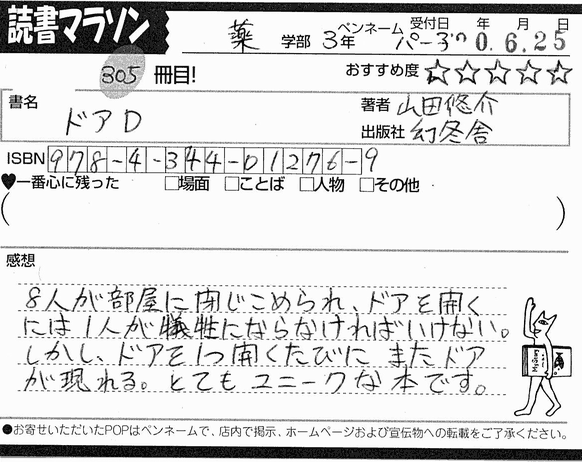 読書マラソン
薬 学部 3年 ペンネーム パーラー 受付日 年 月 日
0.6.25
305 冊目! おすすめ度 ☆☆☆☆☆
書名 ドアD
著者 山田悠介
出版社 幻冬舎
ISBN 978-4-344-01276-9
♥一番心に残った □場面 □ことば □人物 □その他
( )
感想
8人が部屋に閉じこめられ、ドアを開く
には1人が犠牲にならなければいけない。
しかし、ドアを1つ開くたびに またドア
が現れる。とてもユニークな本です。
●お寄せいただいたPOPはペンネームで、店内で掲示、ホームページおよび宣伝物への転載をご了承ください。